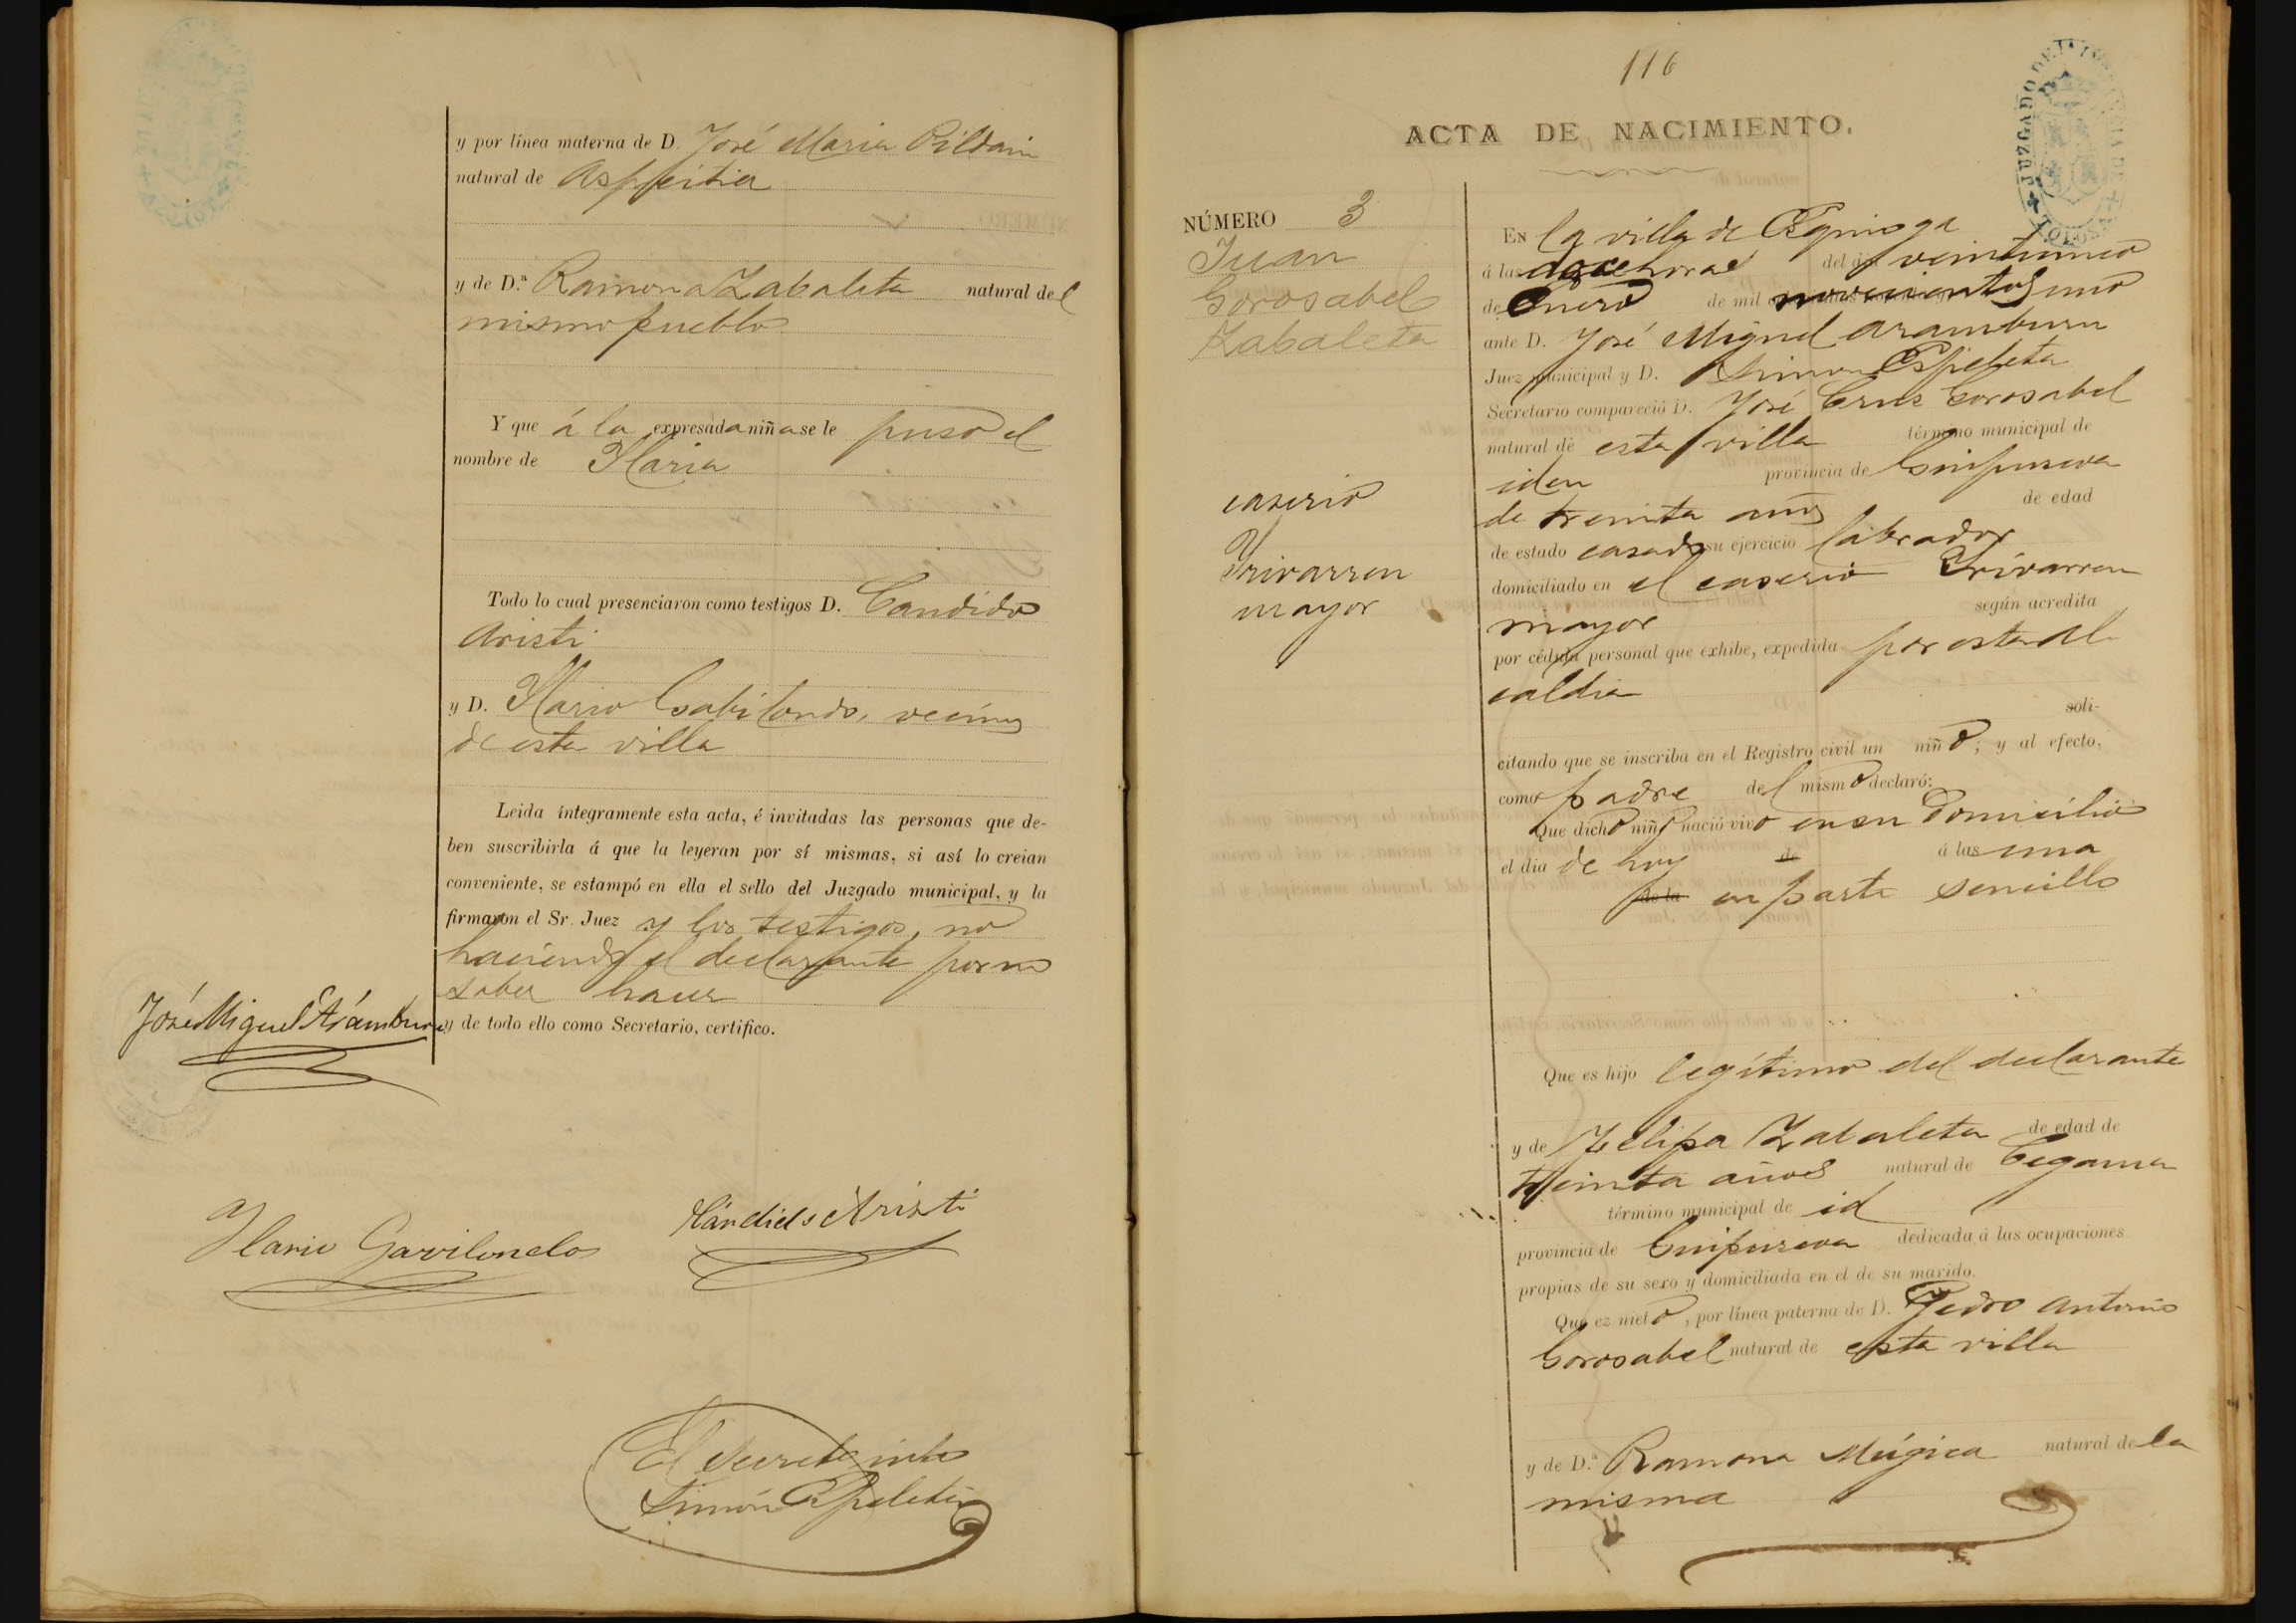 y por línea materna de D. José Maria Pildain
natural de Aspeitia
y de D.ª Ramona Zabaleta natural del
mismo pueblo
Y que á la expresada niña se le puso el
nombre de Ilaria
Todo lo cual presenciaron como testigos D. Candido
Aristi
y D. Ilario Gabilondo, vecinos
de esta villa
Leida íntegramente esta acta, é invitadas las personas que de-
ben suscribirla á que la leyeran por sí mismas, si así lo creian
conveniente, se estampó en ella el sello del Juzgado municipal, y la
firmaron el Sr. Juez y los testigos, no
haciendo el declarante por no
saber hacer
y de todo ello como Secretario, certifico.
José Miguel Arámburu
Ilario Gavilondo
Cándido Aristi
El Secretario
Simón Espeleta
116
ACTA DE NACIMIENTO.
JUZGADO DE TOLOSA
NÚMERO 3
Juan
Gorosabel
Zabaleta
caserio
Yrivarren
mayor
EN la villa de
á las doce horas del dia veintiuno
de Enero de mil novecientos uno
ante D. José Miguel Aramburu
Juez municipal y D. Simon Espeleta
Secretario compareció D. José Cruz Gorosabel
natural de esta villa término municipal de
iden provincia de Guipuscoa
de treinta años de edad
de estado casado su ejercicio labrador
domiciliado en el caserio Yrivarren
mayor según acredita
por cédula personal que exhibe, expedida por esta Al
caldia
soli-
citando que se inscriba en el Registro civil un niño; y al efecto,
como padre del mismo declaró:
Que dicho niño nació vivo en su Domicilio
el dia de hoy de á las una
de la en parto sencillo
Que es hijo legítimo del declarante
y de Felipa Zabaleta de edad de
treinta años natural de Cegama
término municipal de id
provincia de Guipuscoa dedicada á las ocupaciones
propias de su sexo y domiciliada en el de su marido.
Que ez nieto, por línea paterna de D. Pedro Antonio
Gorosabel natural de esta villa
y de D.ª Ramona Múgica natural de la
misma